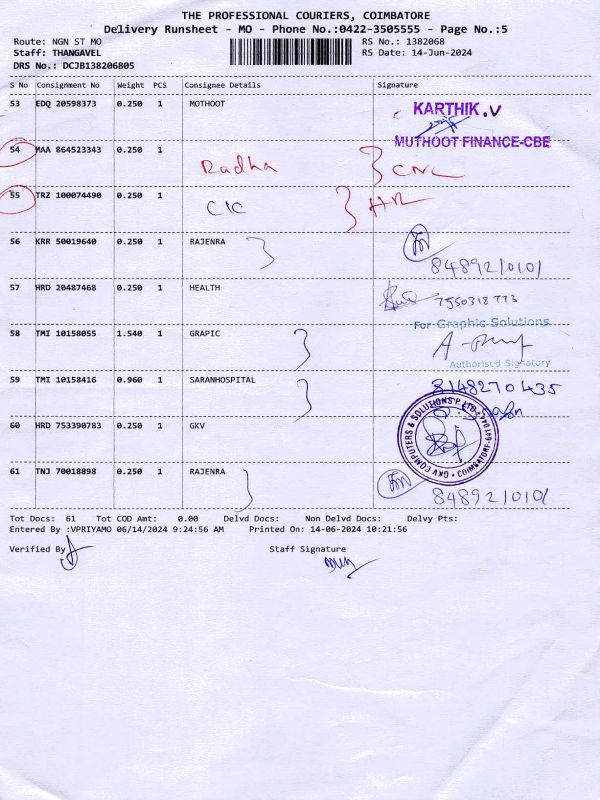 THE PROFESSIONAL COURIERS, COIMBATORE
Delivery Runsheet - MO - Phone No.:0422-3505555 - Page No.:5
Route: NGN ST MO RS No.: 1382068
Staff: THANGAVEL RS Date: 14-Jun-2024
DRS No.: DCJB138206805
S No Consignment No Weight PCS Consignee Details Signature
53 EDQ 20598373 0.250 1 MOTHOOT KARTHIK.V
MUTHOOT FINANCE-CBE
54 MAA 864523343 0.250 1
Radha CNL
55 TRZ 100074490 0.250 1
CIC HR
56 KRR 50019640 0.250 1 RAJENRA
8489210101
57 HRD 20487468 0.250 1 HEALTH
7550318773
For Graphic Solutions
58 TMI 10158055 1.540 1 GRAPIC
Authorised Signatory
59 TMI 10158416 0.960 1 SARANHOSPITAL 8148270435
60 HRD 753390783 0.250 1 GKV
GKV COMPUTERS & SOLUTIONS P LTD
61 TNJ 70018898 0.250 1 RAJENRA
8489210101
Tot Docs: 61 Tot COD Amt: 0.00 Delvd Docs: Non Delvd Docs: Delvy Pts:
Entered By :VPRIYAMO 06/14/2024 9:24:56 AM Printed On: 14-06-2024 10:21:56
Verified By Staff Signature